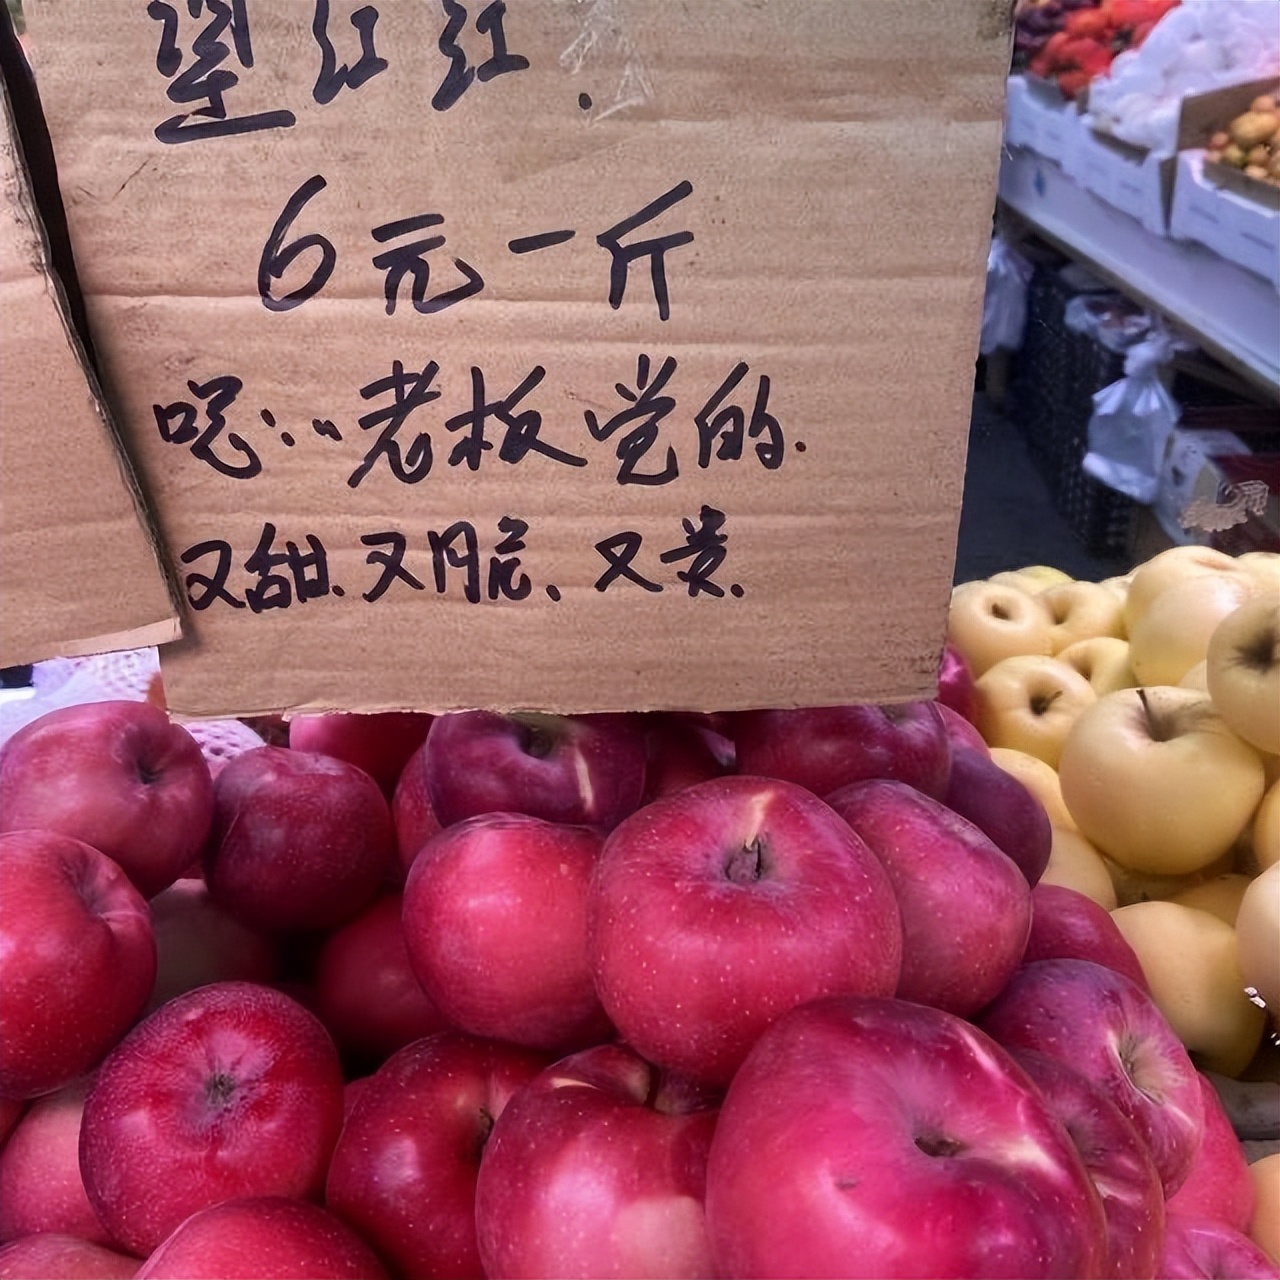 红红.
6元一斤
呃:··老板觉的.
又甜.又脆、又贵.